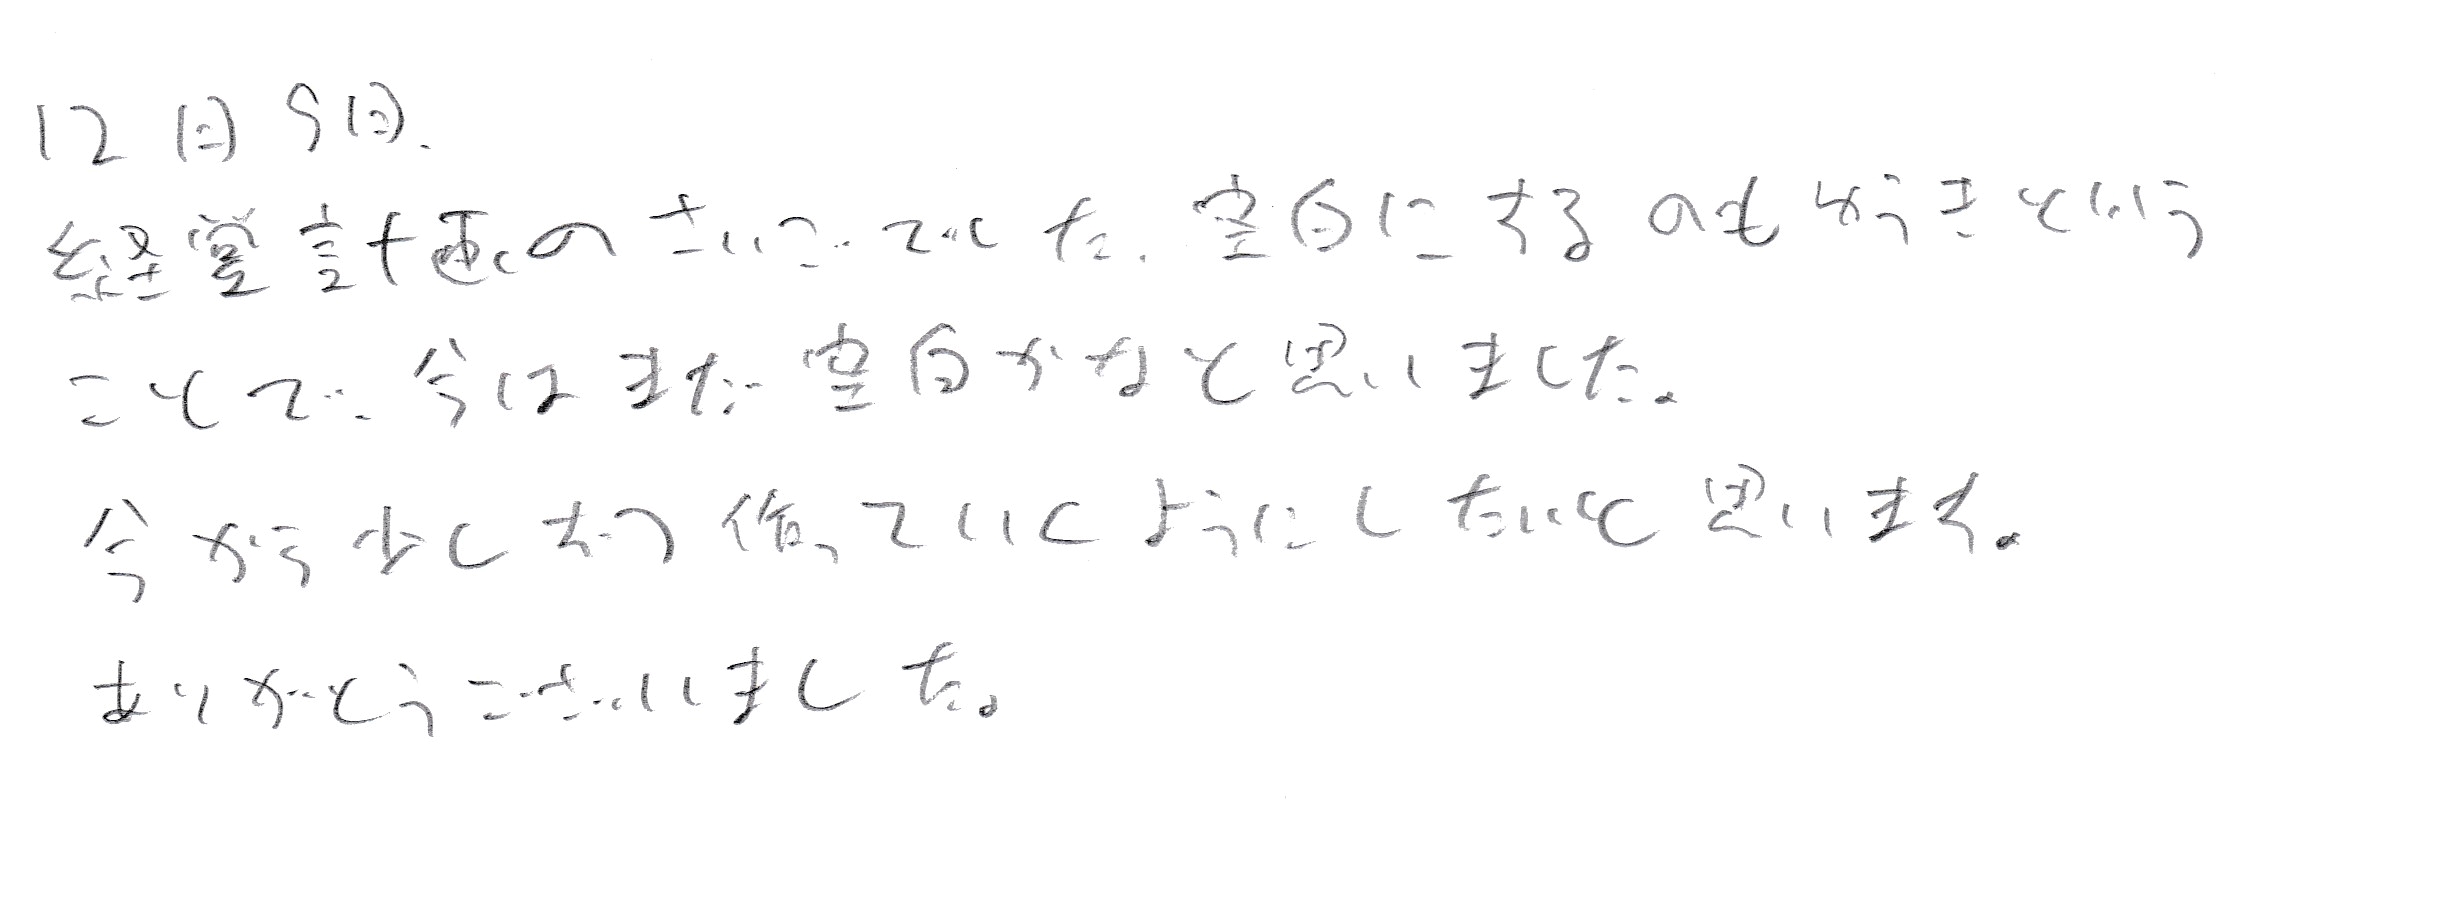 12月9日.
経営計画のさいごでした。空白にするのもゆうきという
ことで、今はまだ空白かなと思いました。
今から少しずつ作っていくようにしたいと思います。
ありがとうございました。